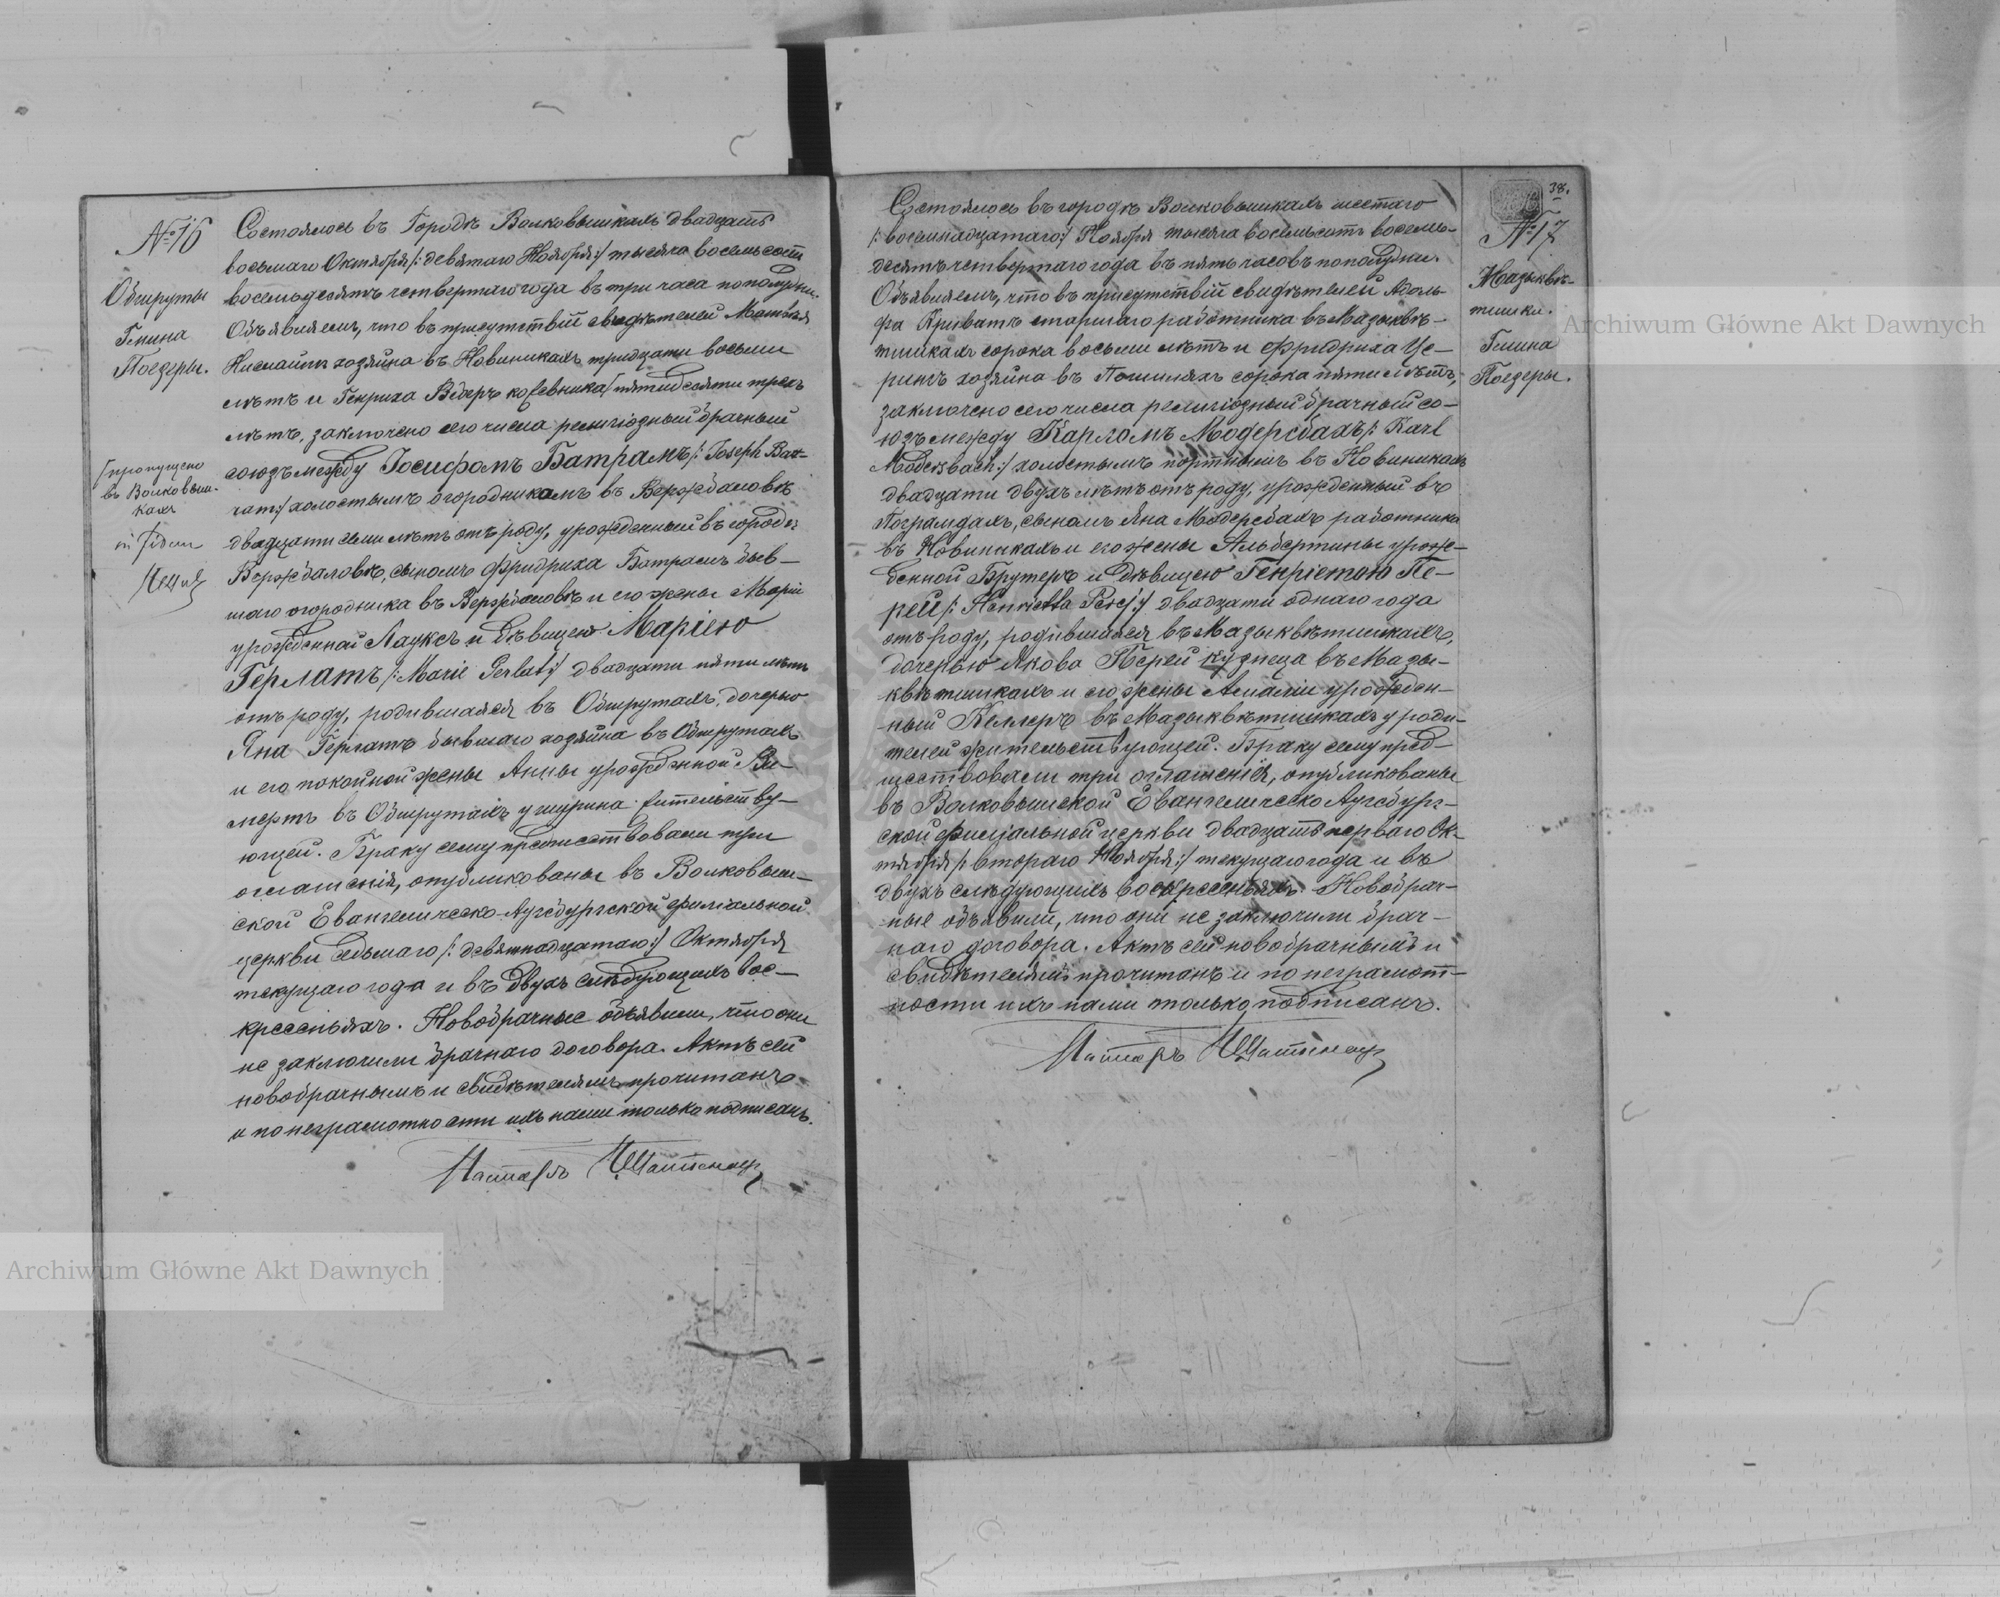 №16
Обшруты
Гмина
Поезеры.
Состоялось въ Городѣ Волковышкахъ двадцать
восьмаго Октября /: девятаго Ноября :/ тысяча восемьсотъ
восемьдесятъ четвертаго года въ три часа пополудни.
Объявляемъ, что въ присутствіи свидѣтелей Матвѣя
хозяина въ Новиникахъ тридцати восьми
лѣтъ и Генриха Ведеръ пятидесяти трехъ
лѣтъ, заключено сего числа религіозный брачный
союзъ между Іосифомъ Батрамъ /: Joseph
:/ холостымъ огородникомъ въ Вержболовѣ
двадцати семи лѣтъ отъ роду, урожденный въ городѣ
Вержболовѣ, сыномъ Фридриха Батрамъ быв-
шаго огородника въ Вержболовѣ и его жены Маріи
урожденной Лауксъ и дѣвицею Маріею
Герлатъ /: Marie Gerlat :/ двадцати пяти лѣтъ
отъ роду, родившаяся въ Обшрутахъ, дочерью
Яна Герлатъ бывшаго хозяина въ Обшрутахъ
и его покойной жены Анны урожденной
въ Обшрутахъ у шурина жительству-
ющей. Браку сему предшествовали три
оглашенія, опубликованы въ Волковыш-
ской Евангелическо-Аугсбургской филіальной
церкви седьмаго /: девятнадцатаго :/ Октября
текущаго года и въ двухъ слѣдующихъ вос-
кресеньяхъ. Новобрачные объявили, что они
не заключили брачнаго договора. Актъ сей
новобрачнымъ и свидѣтелямъ прочитанъ
и по неграмотности ихъ нами только подписанъ.
Пасторъ
пропущено
въ Волковыш-
кахъ
in fidem
38.
№17
Мазыквѣ-
тишки.
Гмина
Поезеры.
Состоялось въ городѣ Волковышкахъ шестаго
/: восемнадцатаго :/ Ноября тысяча восемьсотъ восемь-
десятъ четвертаго года въ пять часовъ пополудни.
Объявляемъ, что въ присутствіи свидѣтелей Адоль-
фа Криватъ старшаго работника въ Мазыквѣ-
тишкахъ сорока восьми лѣтъ и Фридриха Це-
рингъ хозяина въ сорока пяти лѣтъ,
заключено сего числа религіозный брачный со-
юзъ между Карломъ Модерсбахъ /: Karl
Modersbach :/ холостымъ портнымъ въ Новиникахъ
двадцати двухъ лѣтъ отъ роду, урожденный въ
Пограмдахъ, сыномъ Яна Модерсбахъ работника
въ Новиникахъ и его жены Альбертины урож-
денной Брутеръ и дѣвицею Генріетою Пе-
рей /: Henrietta Perej :/ двадцати однаго года
отъ роду, родившаяся въ Мазыквѣтишкахъ,
дочерью Якова Перей кузнеца въ Мазы-
квѣтишкахъ и его жены Амаліи урожден-
ный Келлеръ въ Мазыквѣтишкахъ у роди-
телей жительствующей. Браку сему пред-
шествовали три оглашенія, опубликованы
въ Волковышской Евангелическо Аугсбург-
ской филіальной церкви двадцать перваго Ок-
тября /: втораго Ноября :/ текущаго года и въ
двухъ слѣдующихъ воскресеньяхъ. Новобрач-
ные объявили, что они не заключили брач-
наго договора. Актъ сей новобрачнымъ и
свидѣтелямъ прочитанъ и по неграмот-
ности ихъ нами только подписанъ.
Пасторъ
Archiwum Główne Akt Dawnych
Archiwum Główne Akt Dawnych